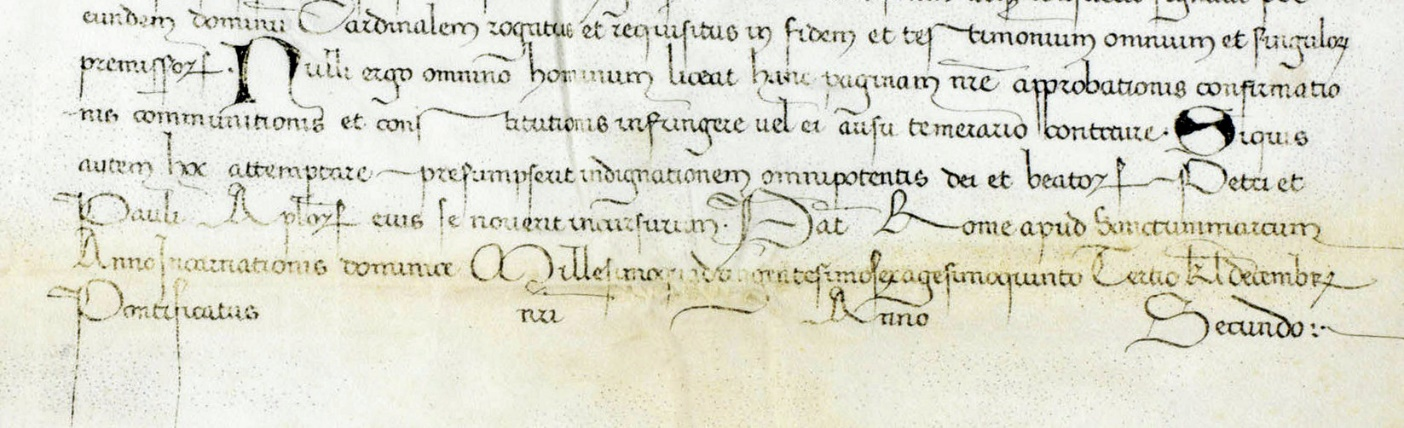 eundem dominū Cardinalem rogatus et requisitus in fidem et testimonium omnium et singulorꝝ
premissorꝝ. Nulli ergo omnino hominum liceat hanc paginam nr̄e approbationis confirmatio
nis communitionis et constitutionis infringere uel ei ausu temerario contraire. Siquis
autem hoc attemptare presumpserit indignationem omnipotentis dei et beatorꝝ Petri et
Pauli Apl̄orꝝ eius se nouerit incursurum. Dat̄ Rome apud Sanctummarcum
Anno Incarnationis dominice Millesimoquadringentesimosexagesimoquinto Tertio kl̄ decembrꝝ
Pontificatus nr̄i Anno Secundo: